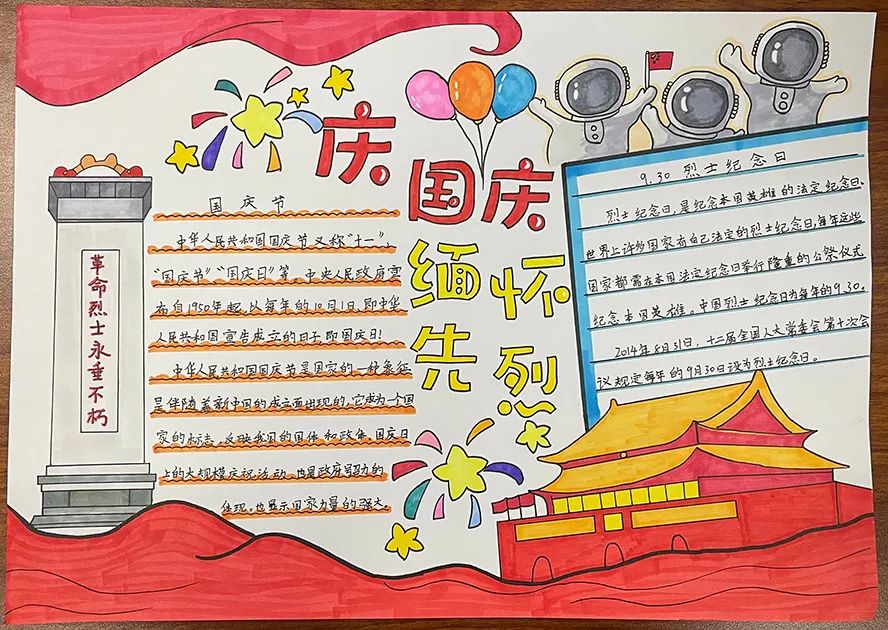 庆国庆
缅怀先烈
革命烈士永垂不朽
国庆节
中华人民共和国国庆节又称"十一"、
"国庆节""国庆日"等。中央人民政府宣
布自1950年起,以每年的10月1日,即中华
人民共和国宣告成立的日子,即国庆日!
中华人民共和国国庆节是国家的一种象征,
是伴随着新中国的成立而出现的,它成为一个国
家的标志,反映我国的国体和政体。国庆日
上的大规模庆祝活动,也是政府号召力的
体现。也显示国家力量的强大。
9.30 烈士纪念日
烈士纪念日,是纪念本国英雄的法定纪念日。
世界上许多国家有自己法定的烈士纪念日,每年这些
国家都需在本国法定纪念日举行隆重的公祭仪式
纪念本国英雄。中国烈士纪念日为每年的9.30。
2014年8月31日,十二届全国人大常委会第十次会
议规定每年的9月30日设为烈士纪念日。